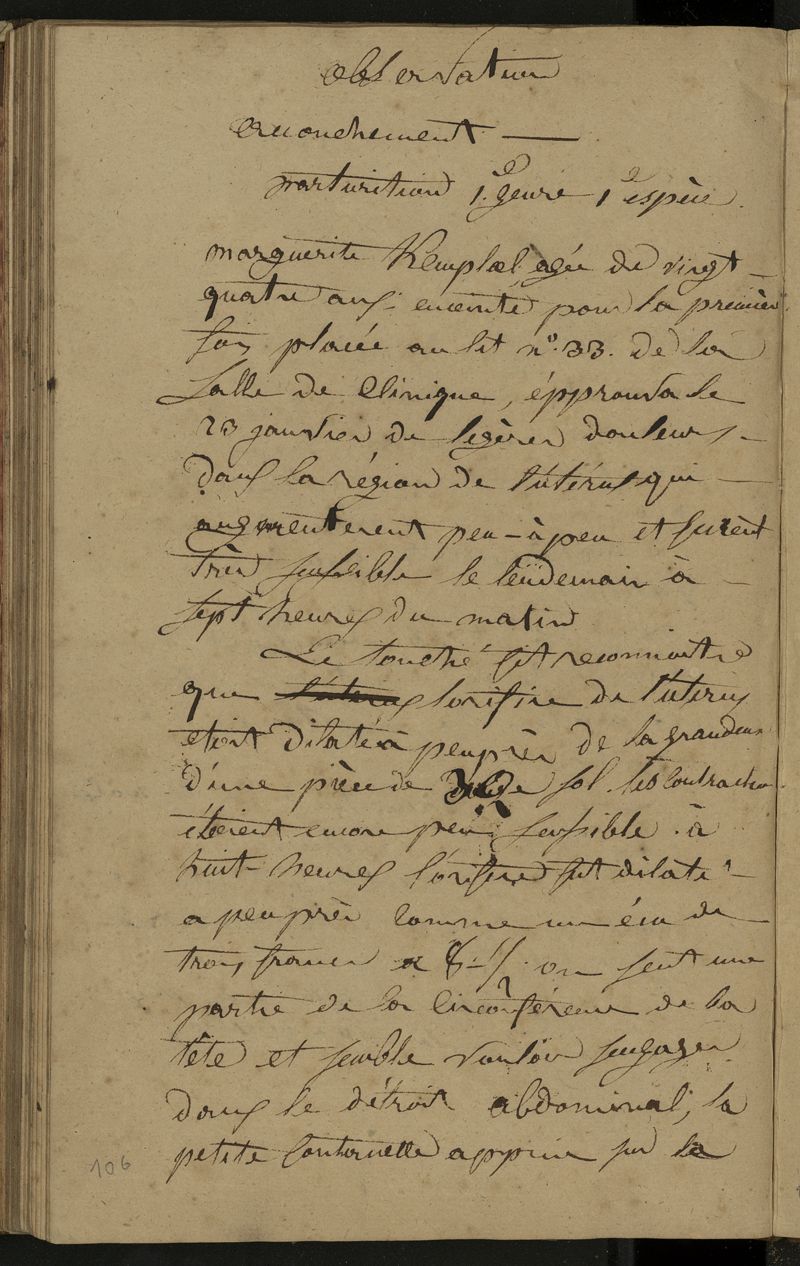 observation
accouchement —
parturition 1.e genre 1e espèce.
marguerite Kemplel agée de vingt-
quatre ans enceinte pour la première
fois placée au lit n° 33. de la
Salle de Clinique, éпprouva le
23 janvier de legères douleurs -
dans la région de l'utérus qui -
augmenterent peu-à peu et furent
très sensible le lendemain à -
sept heures du matin
Le touché fit reconnoitre
que l'uterus l'orifice de l'uterus
etoit dilaté à peuprès de la grandeur
d'une pièce de sol les contraction
étoient encore peu sensible. à
huit-heures l'orifice fut dilaté -
a peuprès comme un écu de
trois francs a 8-½ on sent une
partie de la circonférence de la
tête et semble vouloir s'engager
dans le détroit abdominal, la
petite fontenelle appuie sur la
106